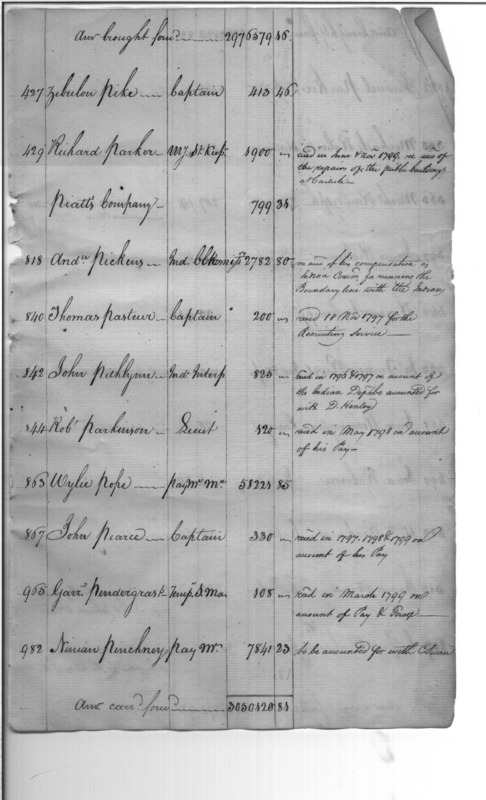 Amt. brought forwd. 2976579 46.
427 Zebulon Pike Captain 413 46
429 Richard Parker My. St. Kepr. 1900 " recd in June & Nov 1799 on acct of
the repairs of the public buildings
at Carlisle
Piatt's Company 799 34
818 Andw. Pickens Ind. Comisr. 2782 80 on acct of his compensation as
Indian Comisr. for running the
Boundary line with the Indians
840 Thomas Pasteur Captain 200 " recd 18 Nov 1797 for the
Recruiting Service
842 John Pitchlynn Ind. Interpr. 825 " recd in 1796 & 1797 on account of
the Indian Dept to be accounted for
with D. Henley
844 Robt. Parkinson Lieut 120 " recd in May 1798 on account
of his Pay
863 Wylie Pope pay Mr. 58224 85
867 John Pearce Captain 330 " recd in 1797. 1798 & 1799 on
account of his Pay
966 Garrd. Pendergrast 108 " recd in March 1799 on
account of Pay & Forage
982 Ninian Pinckney pay Mr. 7841 23 to be accounted for with
Amt. carrd. forwd. 3050420 84